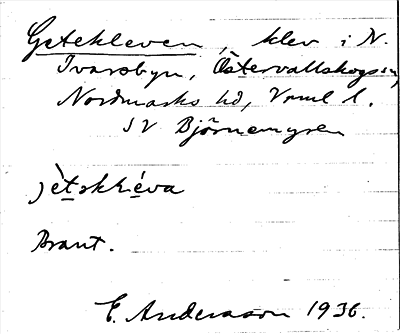 Getekleven, klev i N.
Ivarsbyn, Östervallskogs sn,
Nordmarks hd, Vrml l.
SV Björnemyren
jètskléva
Brant.
E. Andersson 1936.